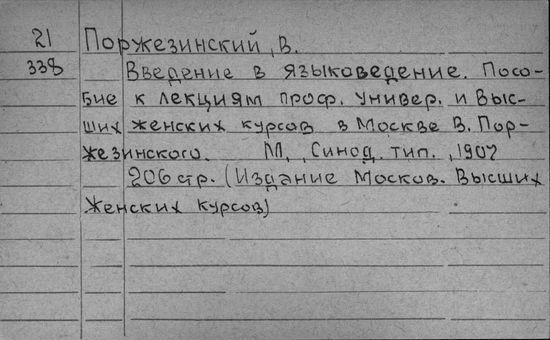 21 Поржезинский, В.
338 Введение в языковедение. Посо-
бие к лекциям проф. универ. и Выс-
ших женских курсов в Москве В. Пор-
жезинского. М., Синод. тип., 1907
206 стр. (Издание Москов. Высших
Женских курсов)